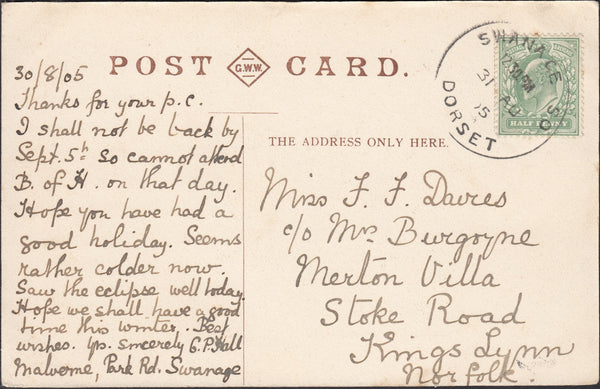 POST G.W.W. CARD.
30/8/05
Thanks for your p.c.
I shall not be back by
Sept. 5th so cannot attend
B. of H. on that day.
Hope you have had a
good holiday. Seems
rather colder now.
Saw the eclipse well today.
Hope we shall have a good
time this winter. Best
wishes. Yrs. sincerely G.P. Hall
Malverne, Park Rd. Swanage
THE ADDRESS ONLY HERE.
Miss F. F. Davies
c/o Mrs Burgoyne
Merton Villa
Stoke Road
Kings Lynn
Norfolk
SWANAGE S.O
12.30PM
31 AU
05
DORSET
HALFPENNY